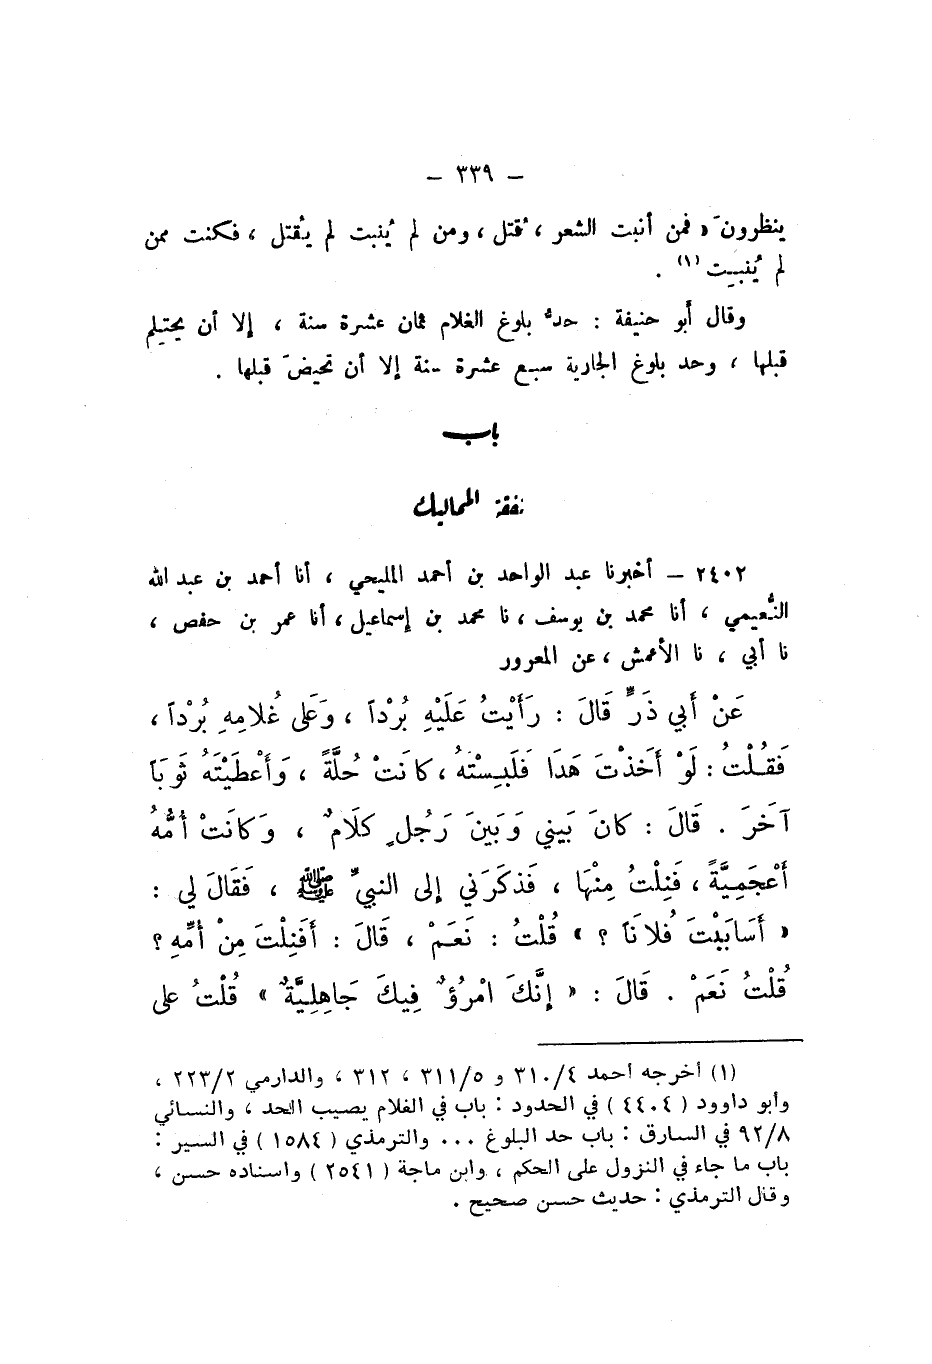 – ٣٣٩ –
ينظرونَ ، فمن أنبت الشعر ، ُقتل ، ومن لم يُنبت لم يقْتل ، فكنت ممن
لم يُنبِت (١) .
وقال أبو حنيفة : حدُّ بلوغ الغلام ثمان عشرة سنة ، إلا أن يحتلِم
قبلها ، وحد بلوغ الجارية سبع عشرة سنة إلا أن تحيضَ قبلها .
باب
نفقة المماليك
٢٤٠٢ – أخبرنا عبد الواحد بن أحمد المليحي ، أنا أحمد بن عبد الله
النُّعيمي ، أنا محمد بن يوسف ، نا محمد بن إسماعيل ، أنا عمر بن حفص ،
نا أبي ، نا الأعمش ، عن المعرور
عَنْ أَبي ذَرٍّ قَالَ : رَأَيْتُ عَلَيْهِ بُرْداً ، وَعَلى غُلامِهِ بُرْداً ،
فَقُلْتُ : لَوْ أَخَذْتَ هَذَا فَلَبِسْتَهُ ، كَانَتْ حُلَّةً ، وَأَعْطَيْتَهُ ثَوبَاً
آخَرَ . قَالَ : كانَ بَيني وَبَينَ رَجُلٍ كَلَامٌ ، وَكَانَتْ أُمُّهُ
أَعْجَمِيَّةً ، فَنِلْتُ مِنْهَا ، فَذكَرَني إلى النبيِّ ﷺ ، فَقَالَ لي :
« أَسَابَبْتَ فُلانَاً ؟ » قُلْتُ : نَعَمْ ، قَالَ : أَفَنِلْتَ مِنْ أُمِّهِ ؟
قُلْتُ نَعَمْ . قَالَ : « إِنَّكَ امْرُؤٌ فِيكَ جَاهِلِيَّةٌ » قُلْتُ على
(١) أخرجه أحمد ٣١٠/٤ و ٣١١/٥ ، ٣١٢ ، والدارمي ٢٢٣/٢ ،
وأبو داوود ( ٤٤٠٤ ) في الحدود : باب في الغلام يصيب الحد ، والنسائي
٩٢/٨ في السارق : باب حد البلوغ ... والترمذي ( ١٥٨٤ ) في السير :
باب ما جاء في النزول على الحكم ، وابن ماجة ( ٢٥٤١ ) واسناده حسن ،
وقال الترمذي : حديث حسن صحيح .